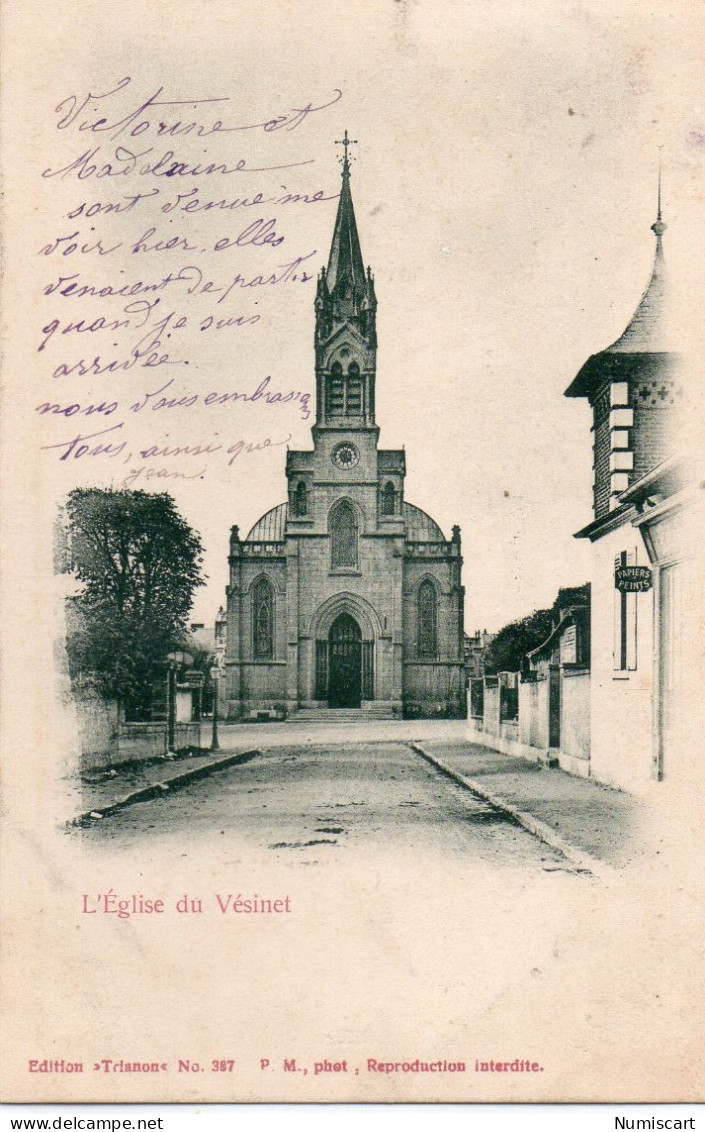 Victorine et
Madelaine
sont venue me
voir hier, elles
venaient de partir
quand je suis
arrivée.
nous vous embrassons
Tous, ainsi que
jean.
PAPIERS
PEINTS
L'Église du Vésinet
Edition »Trianon« No. 387 P. M., phot , Reproduction interdite.
Numiscart.com